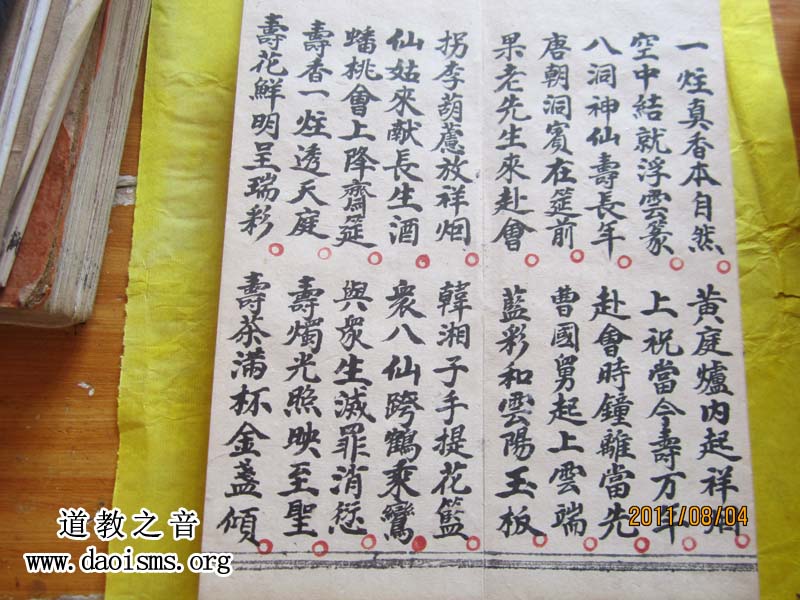 一炷真香本自然 黃庭爐內起祥烟
空中結就浮雲篆 上祝當今壽万年
八洞神仙壽長年 赴會時鐘離當先
唐朝洞賓在筵前 曹國舅起上雲端
果老先生來赴會 藍彩和雲陽玉板
拐李葫蘆放祥烟 韓湘子手提花籃
仙姑來献長生酒 衆八仙跨鶴乘鸞
蟠桃會上降齋筵 與衆生滅罪消愆
壽香一炷透天庭 壽燭光照映至聖
壽花鮮明呈瑞彩 壽茶滿杯金盞傾
2011/08/04
道教之音
www.daoisms.org